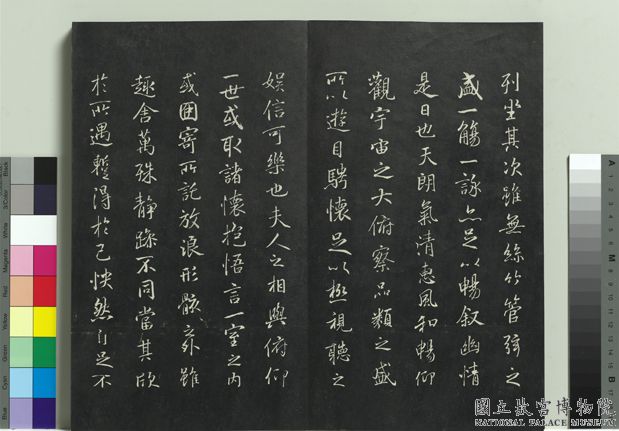 列坐其次雖無絲竹管弦之
盛一觴一詠亦足以暢叙幽情
是日也天朗氣清惠風和暢仰
觀宇宙之大俯察品類之盛
所以遊目騁懷足以極視聽之
娛信可樂也夫人之相與俯仰
一世或取諸懷抱悟言一室之內
或因寄所託放浪形骸之外雖
趣舍萬殊靜躁不同當其欣
於所遇暫得於己怏然自足不
Black
3/Color
White
Magenta
Red
Yellow
Green
Cyan
Blue
A
M
B
國立故宮博物院
NATIONAL PALACE MUSEUM